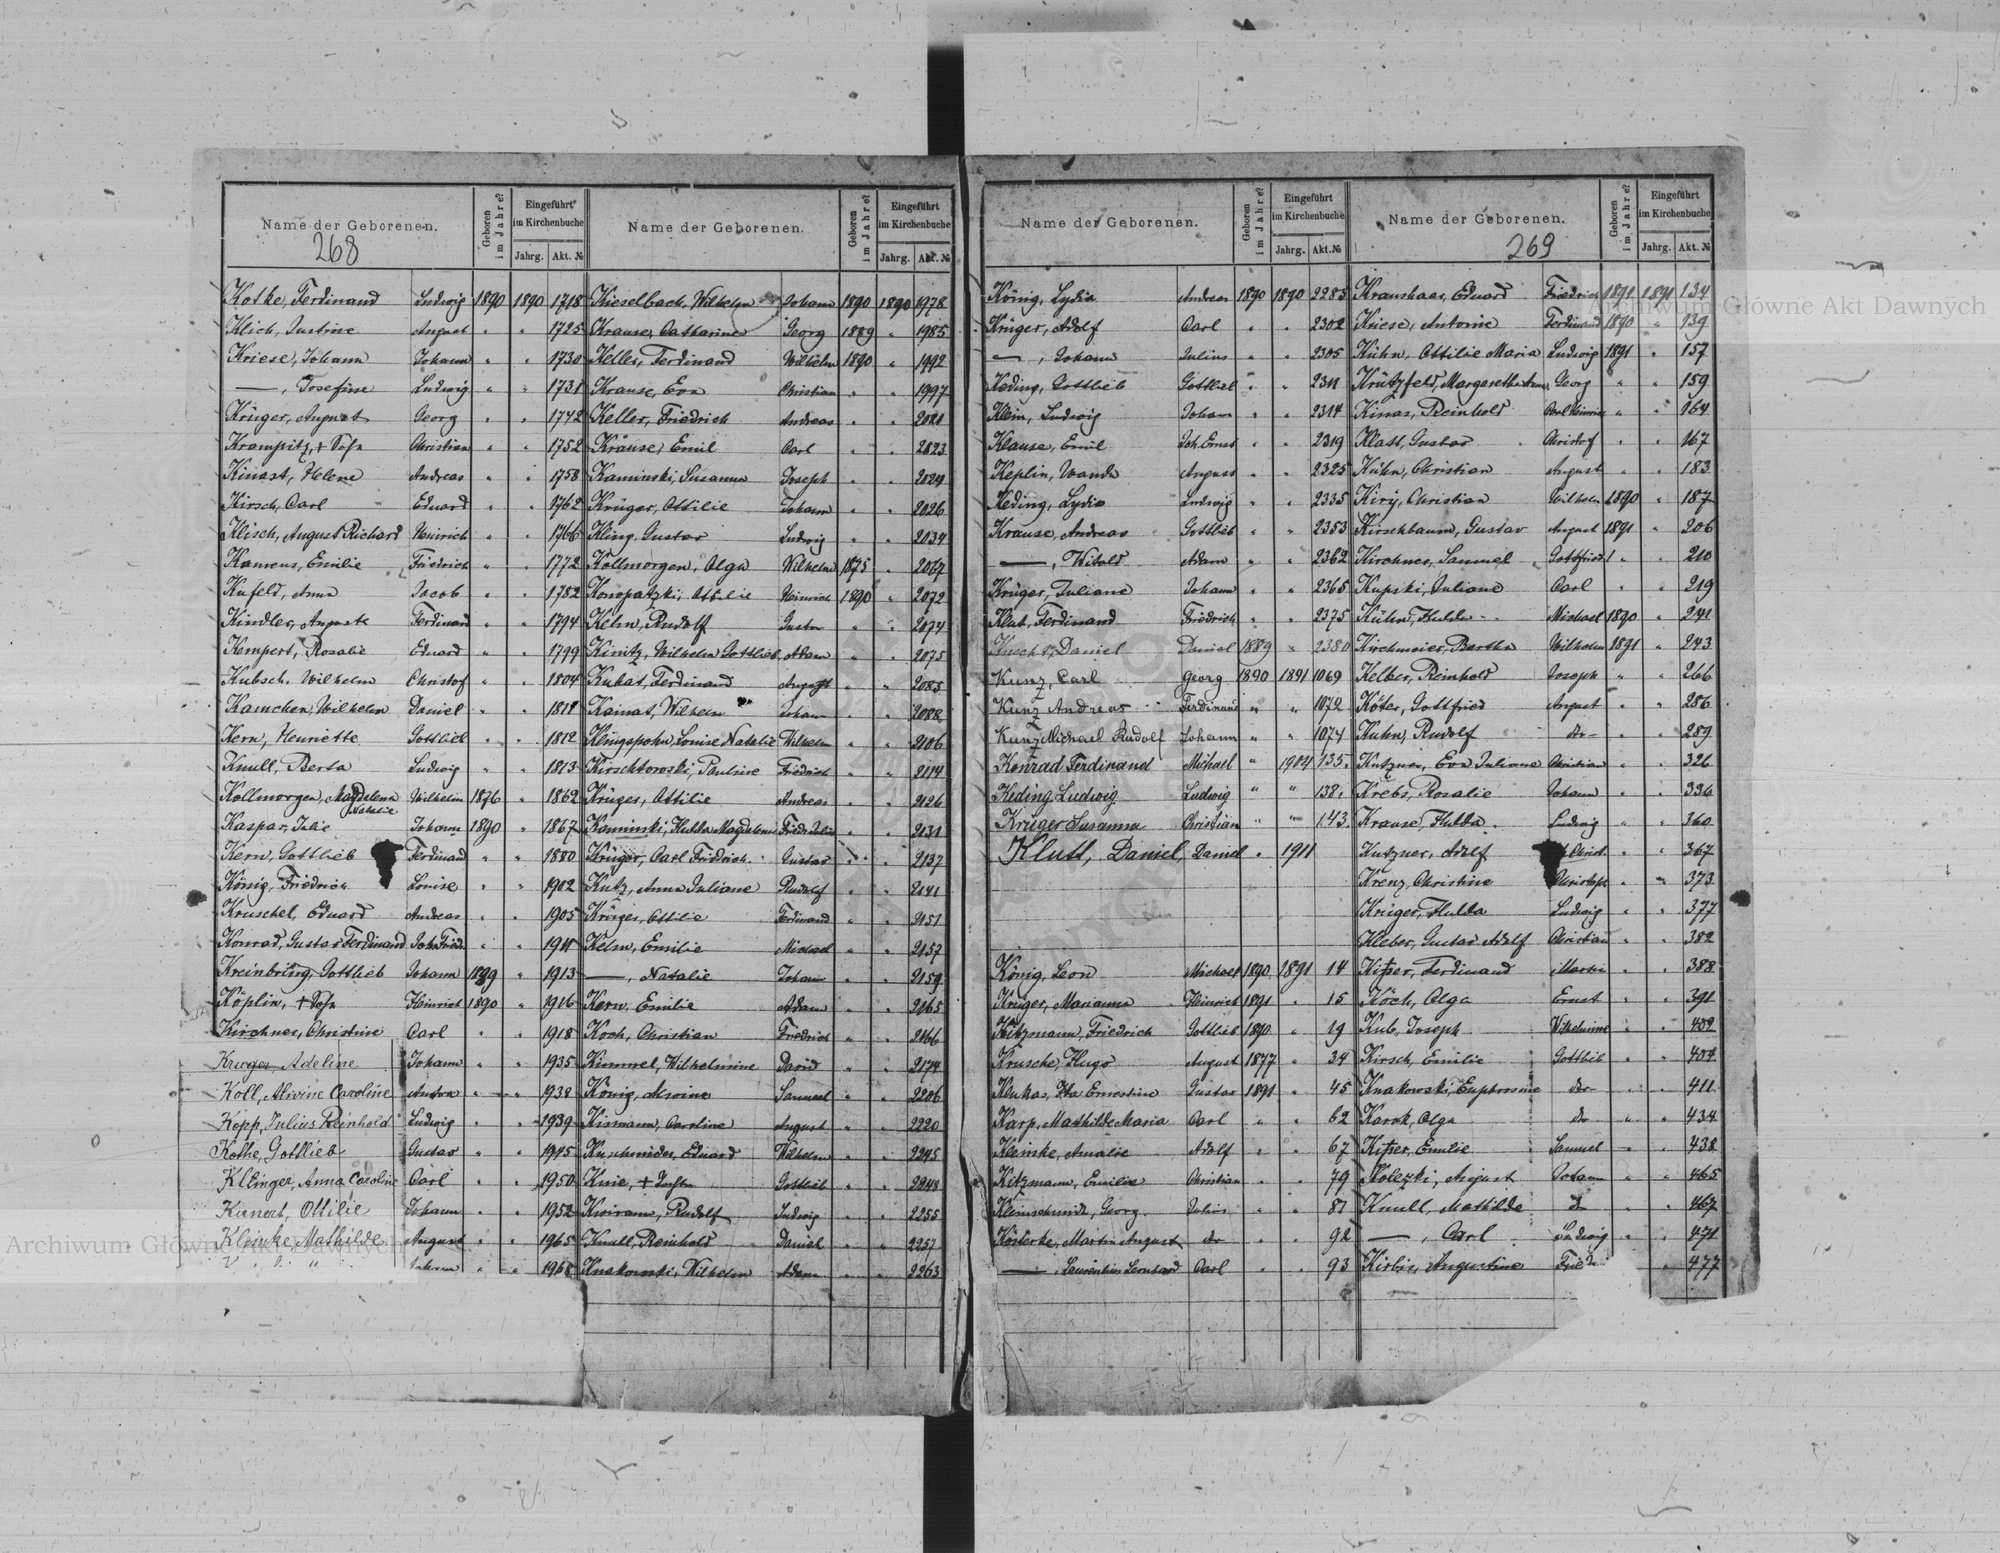 Name der Geborenen.
268
Geboren im Jahre?
Eingeführt im Kirchenbuche
Jahrg. Akt. №
Kotke, Ferdinand Ludwig 1890 1890 1718
Klich, Justine August " " 1725
Kriese, Johann Johann " " 1730
—, Josefine Ludwig " " 1731
Krüger, August Georg " " 1742
Krampitz, + Sofn Christian " " 1752
Kinast, Helene Andreas " " 1758
Kirsch, Carl Eduard " " 1762
Klisch, August Richard Heinrich " " 1766
Kamens, Emilie Friedrich " " 1772
Kufeld, Anna Jacob " " 1782
Kindler, Auguste Ferdinand " " 1794
Kempert, Rosalie Eduard " " 1799
Kubsch, Wilhelm Christof " " 1804
Kamchen, Wilhelm Daniel " " 1811
Kern, Henriette Gottlieb " " 1812
Knull, Berta Ludwig " " 1813
Kollmorgen, Magdalena Natalie Wilhelm 1876 " 1862
Kaspar, Julie Johann 1890 " 1867
Kern, Gottlieb Ferdinand " " 1880
König, Friedrich Louise " " 1902
Kruschel, Eduard Andreas " " 1905
Konrad, Gustav Ferdinand Joh. Friedr. " " 1911
Kreinbring, Gottlieb Johann 1889 " 1913
Köplin, + Sofn Heinrich 1890 " 1916
Kirchner, Christine Carl " " 1918
Kruger, Adeline Johann " " 1935
Koll, Alivine Caroline Andreas " " 1938
Kopp, Julius Reinhold Ludwig " " 1939
Kothe, Gottlieb Gustav " " 1945
Klinger, Anna Caroline Carl " " 1950
Kunert, Ottilie Johann " " 1952
Kleinke, Mathilde August " " 1965
Johann " " 1968
Name der Geborenen.
Geboren im Jahre?
Eingeführt im Kirchenbuche
Jahrg. Akt. №
Kieselbach, Wilhelm Johann 1890 1890 1978
Krause, Catharine Georg 1889 " 1985
Keller, Ferdinand Wilhelm 1890 " 1992
Krause, Eva Christian " " 1997
Keller, Friedrich Andreas " " 2021
Krause, Emil Carl " " 2023
Kaminski, Susanna Joseph " " 2024
Krüger, Ottilie Johann " " 2026
Kling, Gustav Ludwig " " 2034
Kollmorgen, Olga Wilhelm 1875 " 2067
Konopatzki, Ottilie Heinrich 1890 " 2072
Kelm, Rudolf Gustav " " 2074
Kinitz, Wilhelm Gottlieb Adam " " 2075
Kubat, Ferdinand August " " 2085
Kainat, Wilhelm Johann " " 2088
Klingspohn, Louise Natalie Wilhelm " " 2106
Kirschkowski, Pauline Friedrich " " 2114
Krüger, Ottilie Andreas " " 2126
Kaminski, Hulda Magdalena Friedr. Julius " " 2131
Krüger, Carl Friedrich Gustav " " 2137
Kutz, Anna Juliane Rudolf " " 2141
Krüger, Ottilie Ferdinand " " 2151
Kelm, Emilie Michael " " 2157
—, Natalie Johann " " 2159
Kern, Emilie Adam " " 2165
Koch, Christian Friedrich " " 2166
Kimmel, Wilhelmine David " " 2174
König, Alwine Samuel " " 2206
Kismann, Caroline August " " 2220
Kuschmider, Eduard Wilhelm " " 2245
Knie, + Gottlieb " " 2248
Kwiram, Rudolf Ludwig " " 2255
Knull, Reinhold Daniel " " 2257
Knakowski, Wilhelm Adam " " 2263
Name der Geborenen.
Geboren im Jahre?
Eingeführt im Kirchenbuche
Jahrg. Akt. №
König, Lydia Andreas 1890 1890 2285
Krüger, Adolf Carl " " 2302
—, Johann Julius " " 2305
Keding, Gottlieb Gottlieb " " 2311
Klein, Ludwig Johann " " 2314
Klause, Emil Joh. Ernst " " 2319
Keplin, Wanda August " " 2325
Keding, Lydia Ludwig " " 2335
Krause, Andreas Gottlieb " " 2353
—, Witold Adam " " 2362
Krüger, Juliane Johann " " 2365
Klut, Ferdinand Friedrich " " 2375
Daniel Daniel 1889 " 2380
Kunz, Carl Georg 1890 1891 1069
Kunz Andreas Ferdinand " " 1072
Kunz Michael Rudolf Johann " " 1074
Konrad Ferdinand Michael " 1904 135.
Keding Ludwig Ludwig " " 138.
Krüger Susanna Christian " " 143.
Klutt, Daniel, Daniel " 1911
König, Leon Michael 1890 1891 14
Krüger, Marianna Heinrich 1891 " 15
Kitzmann, Friedrich Gottlieb 1890 " 19
Krusche, Hugo August 1877 " 34
Klukas, Ida Ernestine Gustav 1891 " 45
Karp, Mathilde Maria Carl " " 62
Kleinke, Amalie Adolf " " 67
Kitzmann, Emilie Christian " " 79
Kleinschmidt, Georg Julius " " 87
Kösterke, Martin August do " " 92
—, Laurentius Leonhard Carl " " 93
Name der Geborenen.
269
Geboren im Jahre?
Eingeführt im Kirchenbuche
Jahrg. Akt. №
Kraushaar, Eduard Friedrich 1891 1891 134
Kriese, Antonie Ferdinand 1890 " 139
Kühn, Ottilie Maria Ludwig 1891 " 157
Krützfeld, Margarethe Anna Georg " " 159
Kinas, Reinhold Carl Heinrich " " 164
Klatt, Gustav Christof " " 167
Kühn, Christian August " " 183
Kirÿ, Christian Wilhelm 1890 " 187
Kirschbaum, Gustav August 1891 " 206
Kirchner, Samuel Gottfried " " 210
Kupski, Juliane Carl " " 219
Kühn, Hulda Michael 1890 " 241
Kirchmeier, Bertha Wilhelm 1891 " 243
Kelber, Reinhold Joseph " " 266
Köter, Gottfried August " " 286
Kuhn, Rudolf do " " 289
Kutzner, Eva Juliane Christian " " 326
Krebs, Rosalie Johann " " 336
Krause, Hulda Ludwig " " 360
Kutzner, Adolf Christ. " " 367
Krenz, Christine Christoph " " 373
Krüger, Hulda Ludwig " " 377
Kleber, Gustav Adolf Christian " " 382
Kitzer, Ferdinand Martin " " 388
Koch, Olga Ernst " " 391
Kub, Joseph Wilhelmine " " 402
Kirsch, Emilie Gottlieb " " 404
Knakowski, Euphrosine do " " 411
Karok, Olga do " " 434
Kitzer, Emilie Samuel " " 438
Kolezki, August Johann " " 465
Knull, Mathilde do " " 467
—, Carl Ludwig " " 471
Kirbis, Augustine Fried " 477
Archiwum Główne Akt Dawnych
Archiwum Główne Akt Dawnych